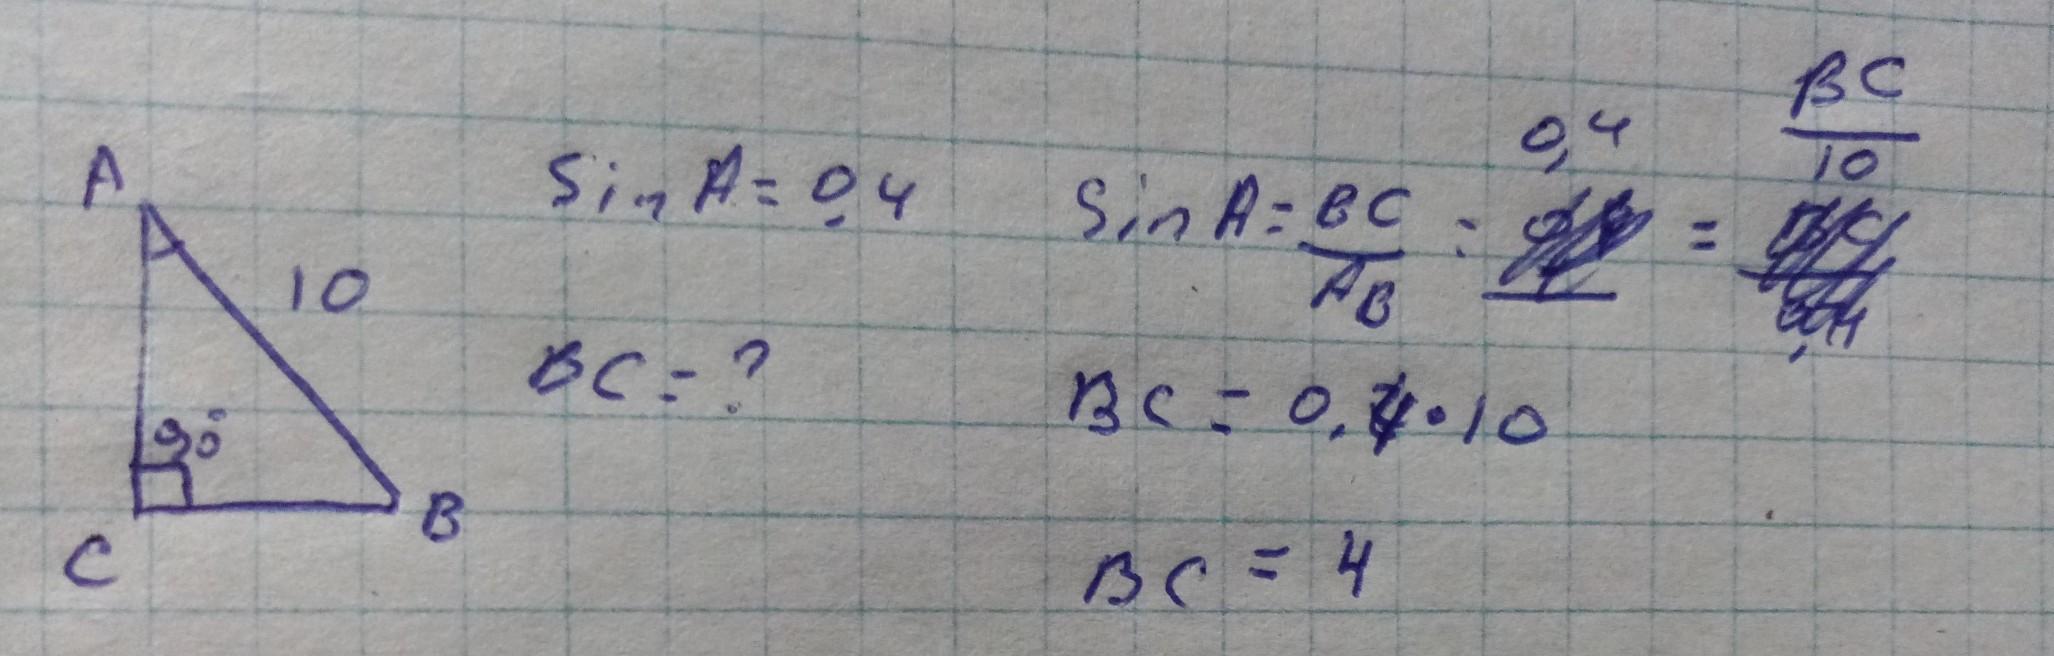 A
10
90°
C
B
Sin A = 0,4
BC = ?
Sin A = BC/AB = 0,4 = BC/10
BC = 0,4·10
BC = 4